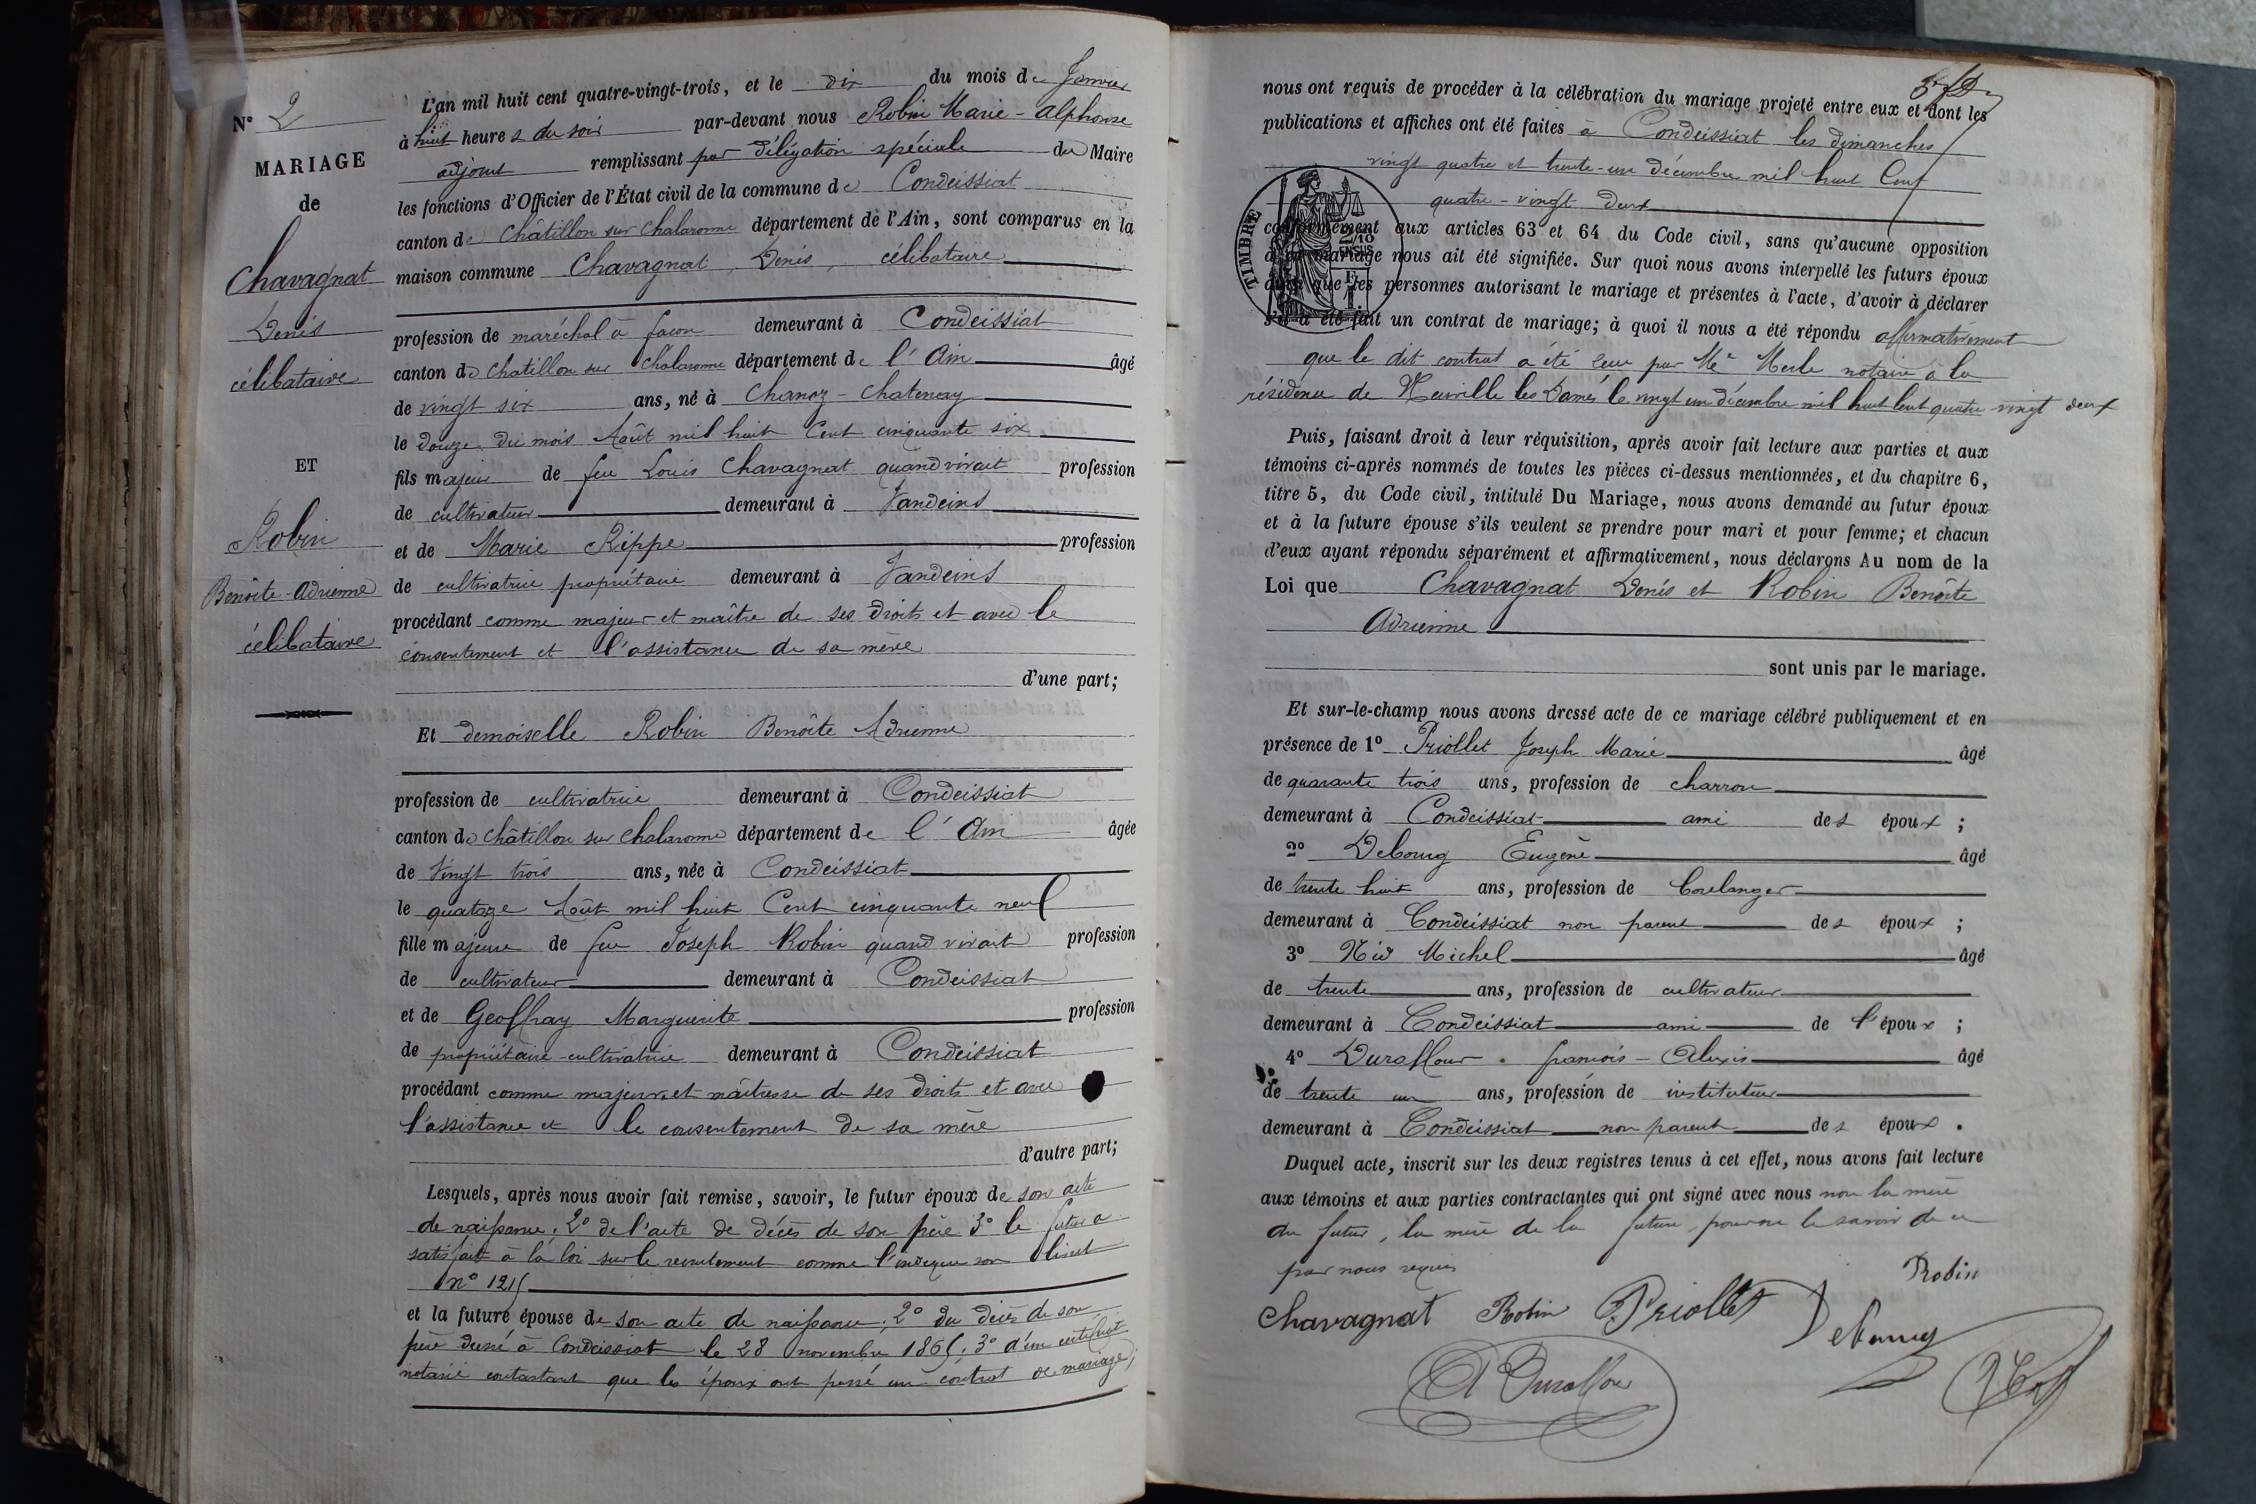 N° 2
MARIAGE
de
Chavagnat
Denis
célibataire
ET
Robin
Benoîte-Adrienne
célibataire
L'an mil huit cent quatre-vingt-trois, et le dix du mois de Janvier
à huit heures du soir par-devant nous Robin Marie-Alphonse
adjoint remplissant par délégation spéciale du Maire
les fonctions d'Officier de l'État civil de la commune de Condeissiat
canton de Châtillon sur Chalaronne département de l'Ain, sont comparus en la
maison commune Chavagnat, Denis, célibataire
profession de maréchal à façon demeurant à Condeissiat
canton de Chatillon sur Chalaronne département de l'Ain âgé
de vingt six ans, né à Chanoz-Chatenay
le douze du mois Août mil huit Cent cinquante six
fils majeur de feu Louis Chavagnat quand vivait profession
de cultivateur demeurant à Vandeins
et de Marie Rippe profession
de cultivatrice propriétaire demeurant à Vandeins
procédant comme majeur et maître de ses droits et avec le
consentement et l'assistance de sa mère
d'une part;
Et demoiselle Robin Benoîte Adrienne
profession de cultivatrice demeurant à Condeissiat
canton de Châtillon sur Chalaronne département de l'Ain âgée
de Vingt trois ans, née à Condeissiat
le quatoze Août mil huit Cent cinquante neuf
fille majeure de feu Joseph Robin quand vivait profession
de cultivateur demeurant à Condeissiat
et de Geoffray Marguerite profession
de propriétaire-cultivatrice demeurant à Condeissiat
procédant comme majeure et maîtresse de ses droits et avec
l'assistance et le consentement de sa mère
d'autre part;
Lesquels, après nous avoir fait remise, savoir, le futur époux de son acte
de naissance; 2° de l'acte de décès de son père 3° le futur a
satisfait à la loi sur le recrutement comme l'indique son livret
n° 1215
et la future épouse de son acte de naissance; 2° du décès de son
père à Condeissiat le 28 novembre 1865; 3° d'un certificat
notarié constatant que les époux ont passé un contrat de mariage;
nous ont requis de procéder à la célébration du mariage projeté entre eux et dont les
publications et affiches ont été faites à Condeissiat les dimanches
vingt quatre et trente-un décembre mil huit Cent
quatre-vingt deux
conformément aux articles 63 et 64 du Code civil, sans qu'aucune opposition
à ce mariage nous ait été signifiée. Sur quoi nous avons interpellé les futurs époux
ainsi que les personnes autorisant le mariage et présentes à l'acte, d'avoir à déclarer
s'il a été fait un contrat de mariage; à quoi il nous a été répondu affirmativement
que le dit contrat a été reçu par Me Merle notaire à la
résidence de Neuville les Dames le vingt un décembre mil huit Cent quatre vingt deux
TIMBRE
2/10
EN SUS
1 F.
Puis, faisant droit à leur réquisition, après avoir fait lecture aux parties et aux
témoins ci-après nommés de toutes les pièces ci-dessus mentionnées, et du chapitre 6,
titre 5, du Code civil, intitulé Du Mariage, nous avons demandé au futur époux
et à la future épouse s'ils veulent se prendre pour mari et pour femme; et chacun
d'eux ayant répondu séparément et affirmativement, nous déclarons Au nom de la
Loi que Chavagnat Denis et Robin Benoîte
Adrienne
sont unis par le mariage.
Et sur-le-champ nous avons dressé acte de ce mariage célébré publiquement et en
présence de 1° Priollet Joseph Marie âgé
de quarante trois ans, profession de charron
demeurant à Condeissiat ami des époux;
2° Debourg Eugène âgé
de trente huit ans, profession de boulanger
demeurant à Condeissiat non parent des époux;
3° Nid Michel âgé
de trente ans, profession de cultivateur
demeurant à Condeissiat ami de l'époux;
4° Duraffour françois-Alexis âgé
de trente un ans, profession de instituteur
demeurant à Condeissiat non parent des époux.
Duquel acte, inscrit sur les deux registres tenus à cet effet, nous avons fait lecture
aux témoins et aux parties contractantes qui ont signé avec nous non la mère
du futur, la mère de la future, pour ne le savoir de ce
par nous requis
Robin
Chavagnat Robin Priollet Debourg
A Duraffour